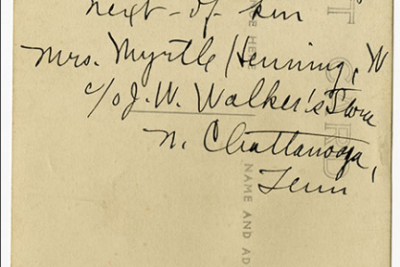 next-of kin
Mrs. Myrtle Henning, N
c/o J. W. Walker's Store
N. Chattanooga,
Tenn
T CARD
CE HERE
NAME AND AD